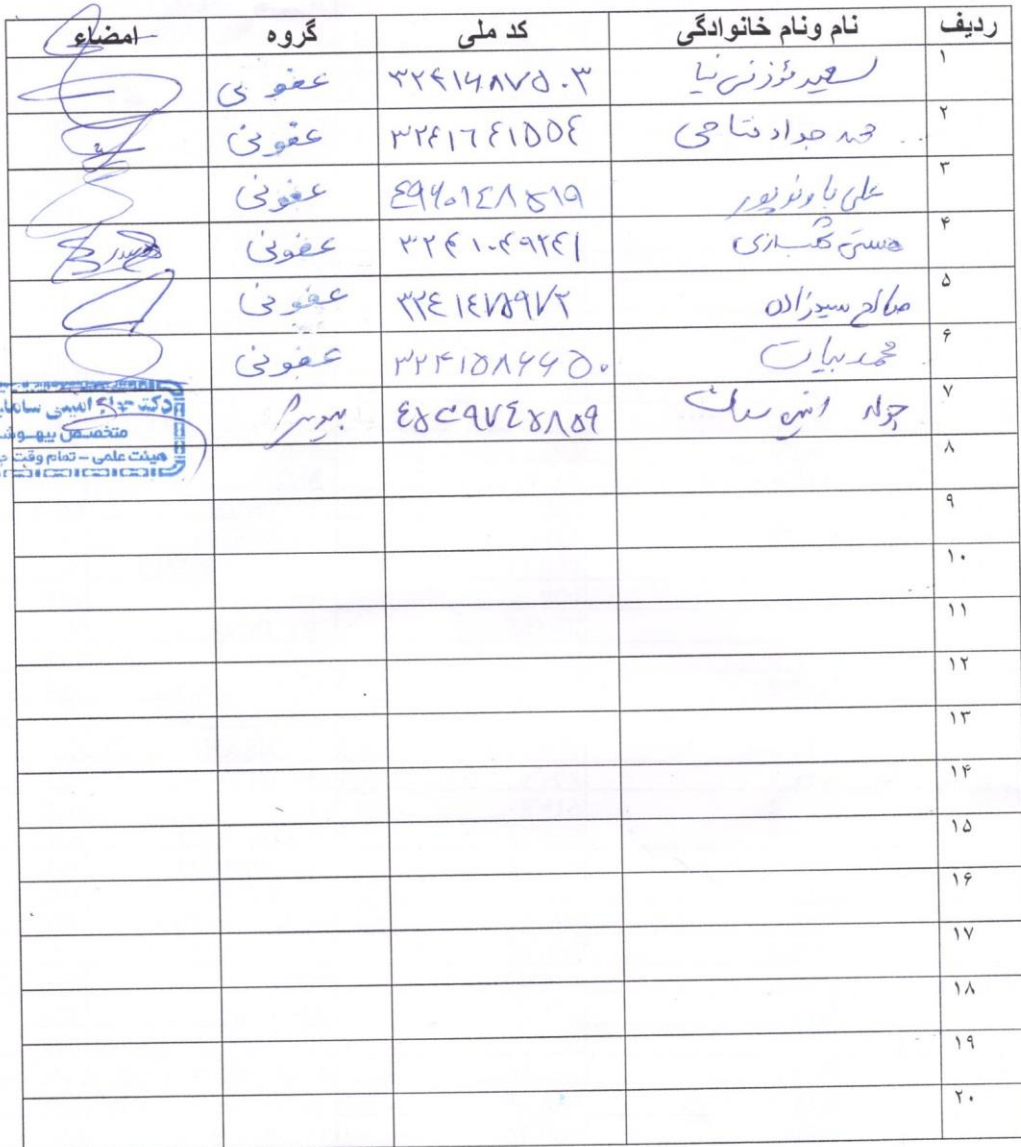 ردیف نام ونام خانوادگی کد ملی گروه امضاء
۱ سعید نیا ۳۲۴۱۶۸۷۵۰۳ عفونی
۲ محمد جواد فتاحی ۳۲۴۱۶۴۱۵۵۴ عفونی
۳ علی باونوپور ۴۹۶۰۱۴۸۵۱۹ عفونی
۴ هستی ۳۲۴۱۰۴۹۲۴۱ عفونی
۵ صالح سیدزاده ۳۲۴۱۴۷۵۹۷۲ عفونی
۶ محمد بیات ۳۲۴۱۵۸۶۶۵۰ عفونی
۷ جواد امینی
دکتر جواد امینی
متخصص بیهوش
هیئت علمی – تمام وقت
۸
۹
۱۰
۱۱
۱۲
۱۳
۱۴
۱۵
۱۶
۱۷
۱۸
۱۹
۲۰